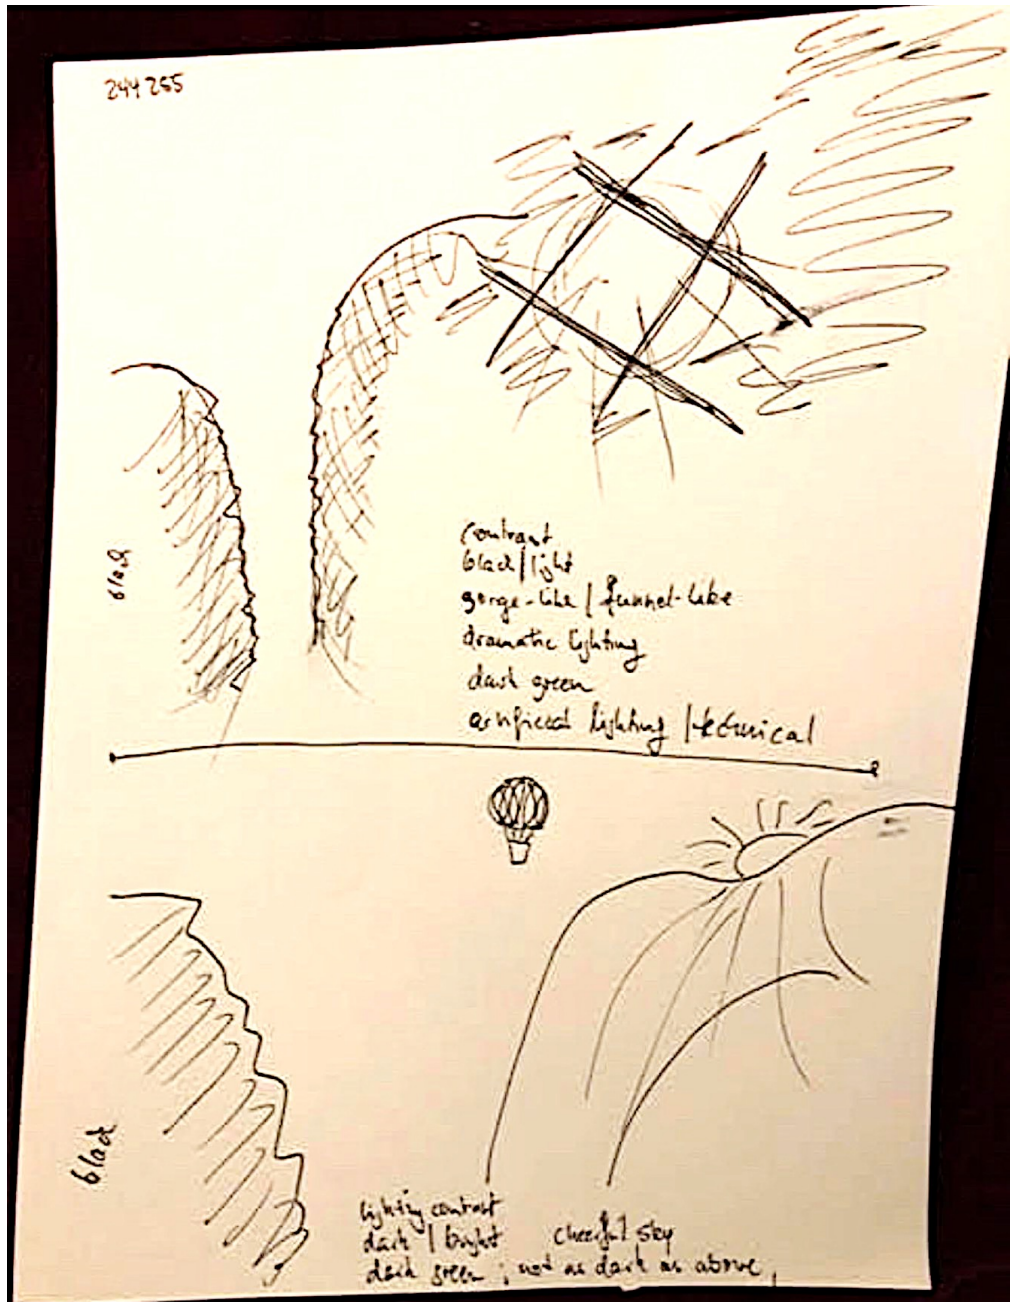 244 255
black
contrast
black / light
gorge-like / funnel-like
dramatic lighting
dark green
artificial lighting / technical
black
lighting contrast
dark / bright cheerful sky
dark green ; not as dark as above,